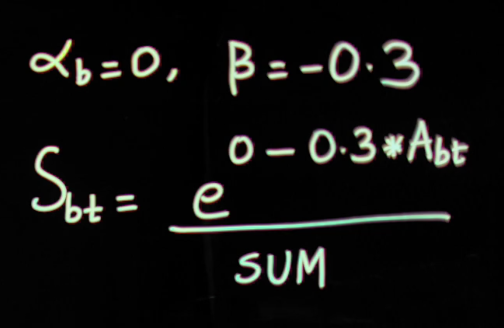 αb = 0, β = -0.3
Sbt = e^(0 - 0.3 * Abt) / SUM